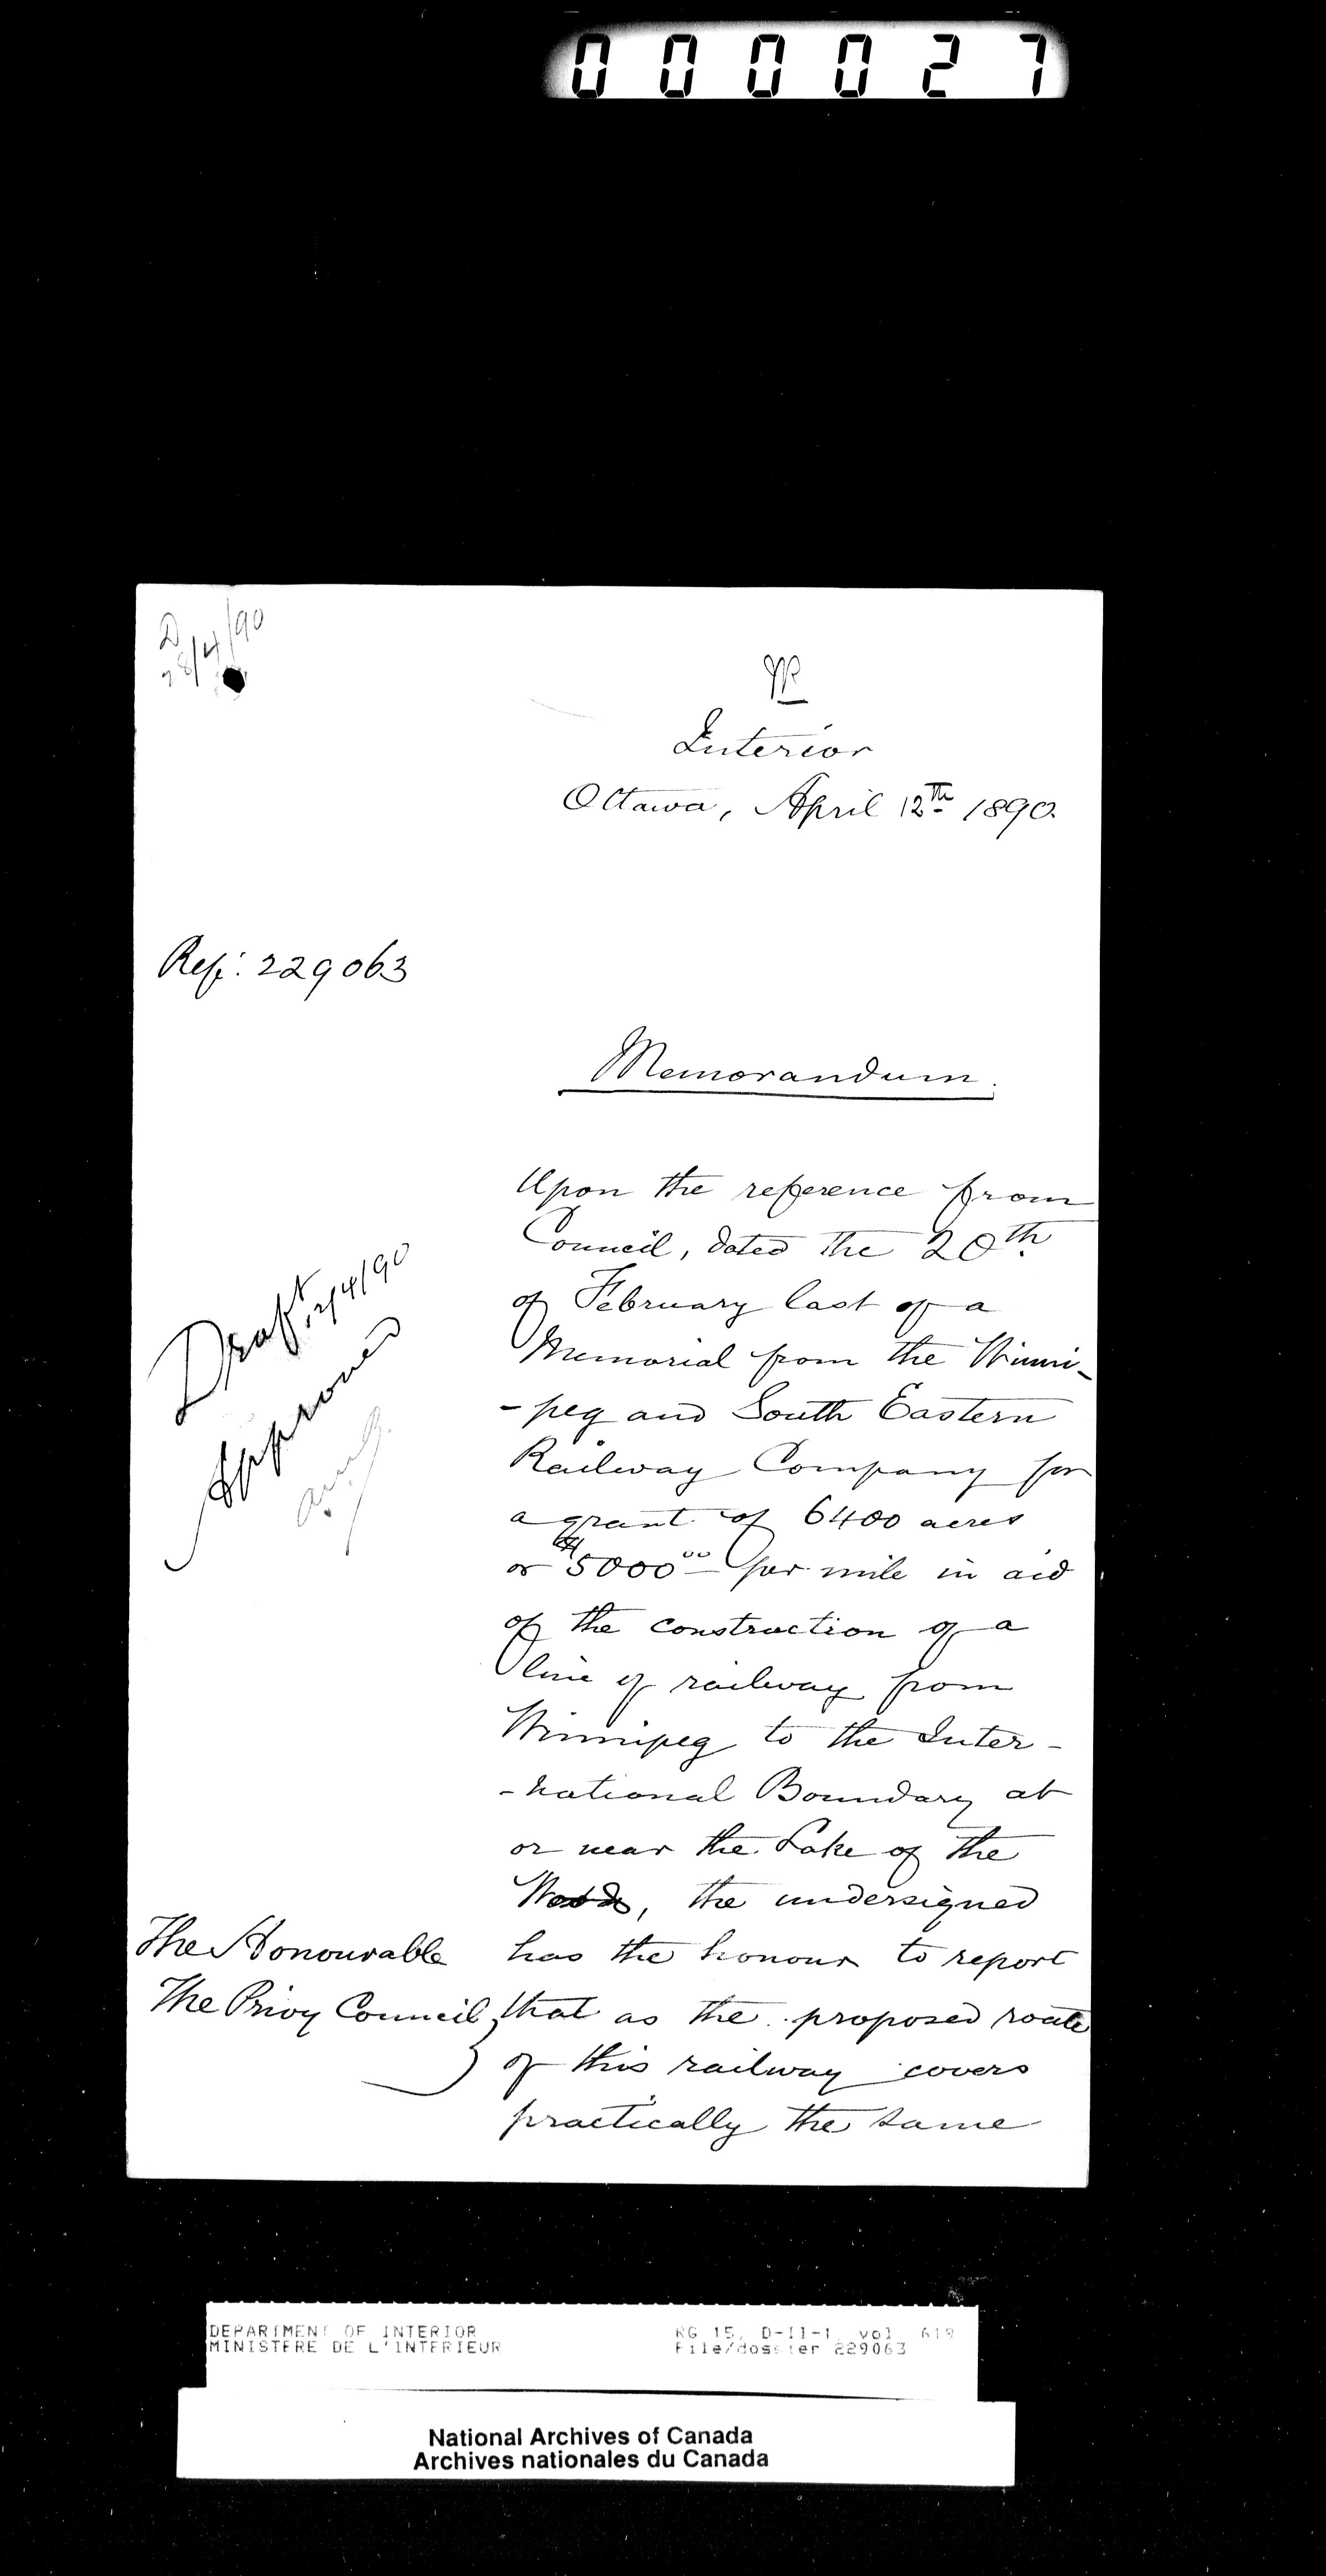 000027
D
28/4/90
Interior
Ottawa, April 12th 1890.
Ref: 229063
Memorandum.
Upon the reference from
Council, dated the 20th
of February last of a
Memorial from the Winni-
-peg and South Eastern
Railway Company for
a grant of 6400 acres
or $5000.00 per mile in aid
of the construction of a
line of railway from
Winnipeg to the Inter-
-national Boundary at
or near the Lake of the
Woods, the undersigned
has the honour to report
that as the proposed route
of this railway covers
practically the same
Draft
Approved
The Honourable
The Privy Council,
DEPARTMENT OF INTERIOR
MINISTERE DE L'INTERIEUR
RG 15, D-II-1, vol. 619
File/dossier 229063
National Archives of Canada
Archives nationales du Canada